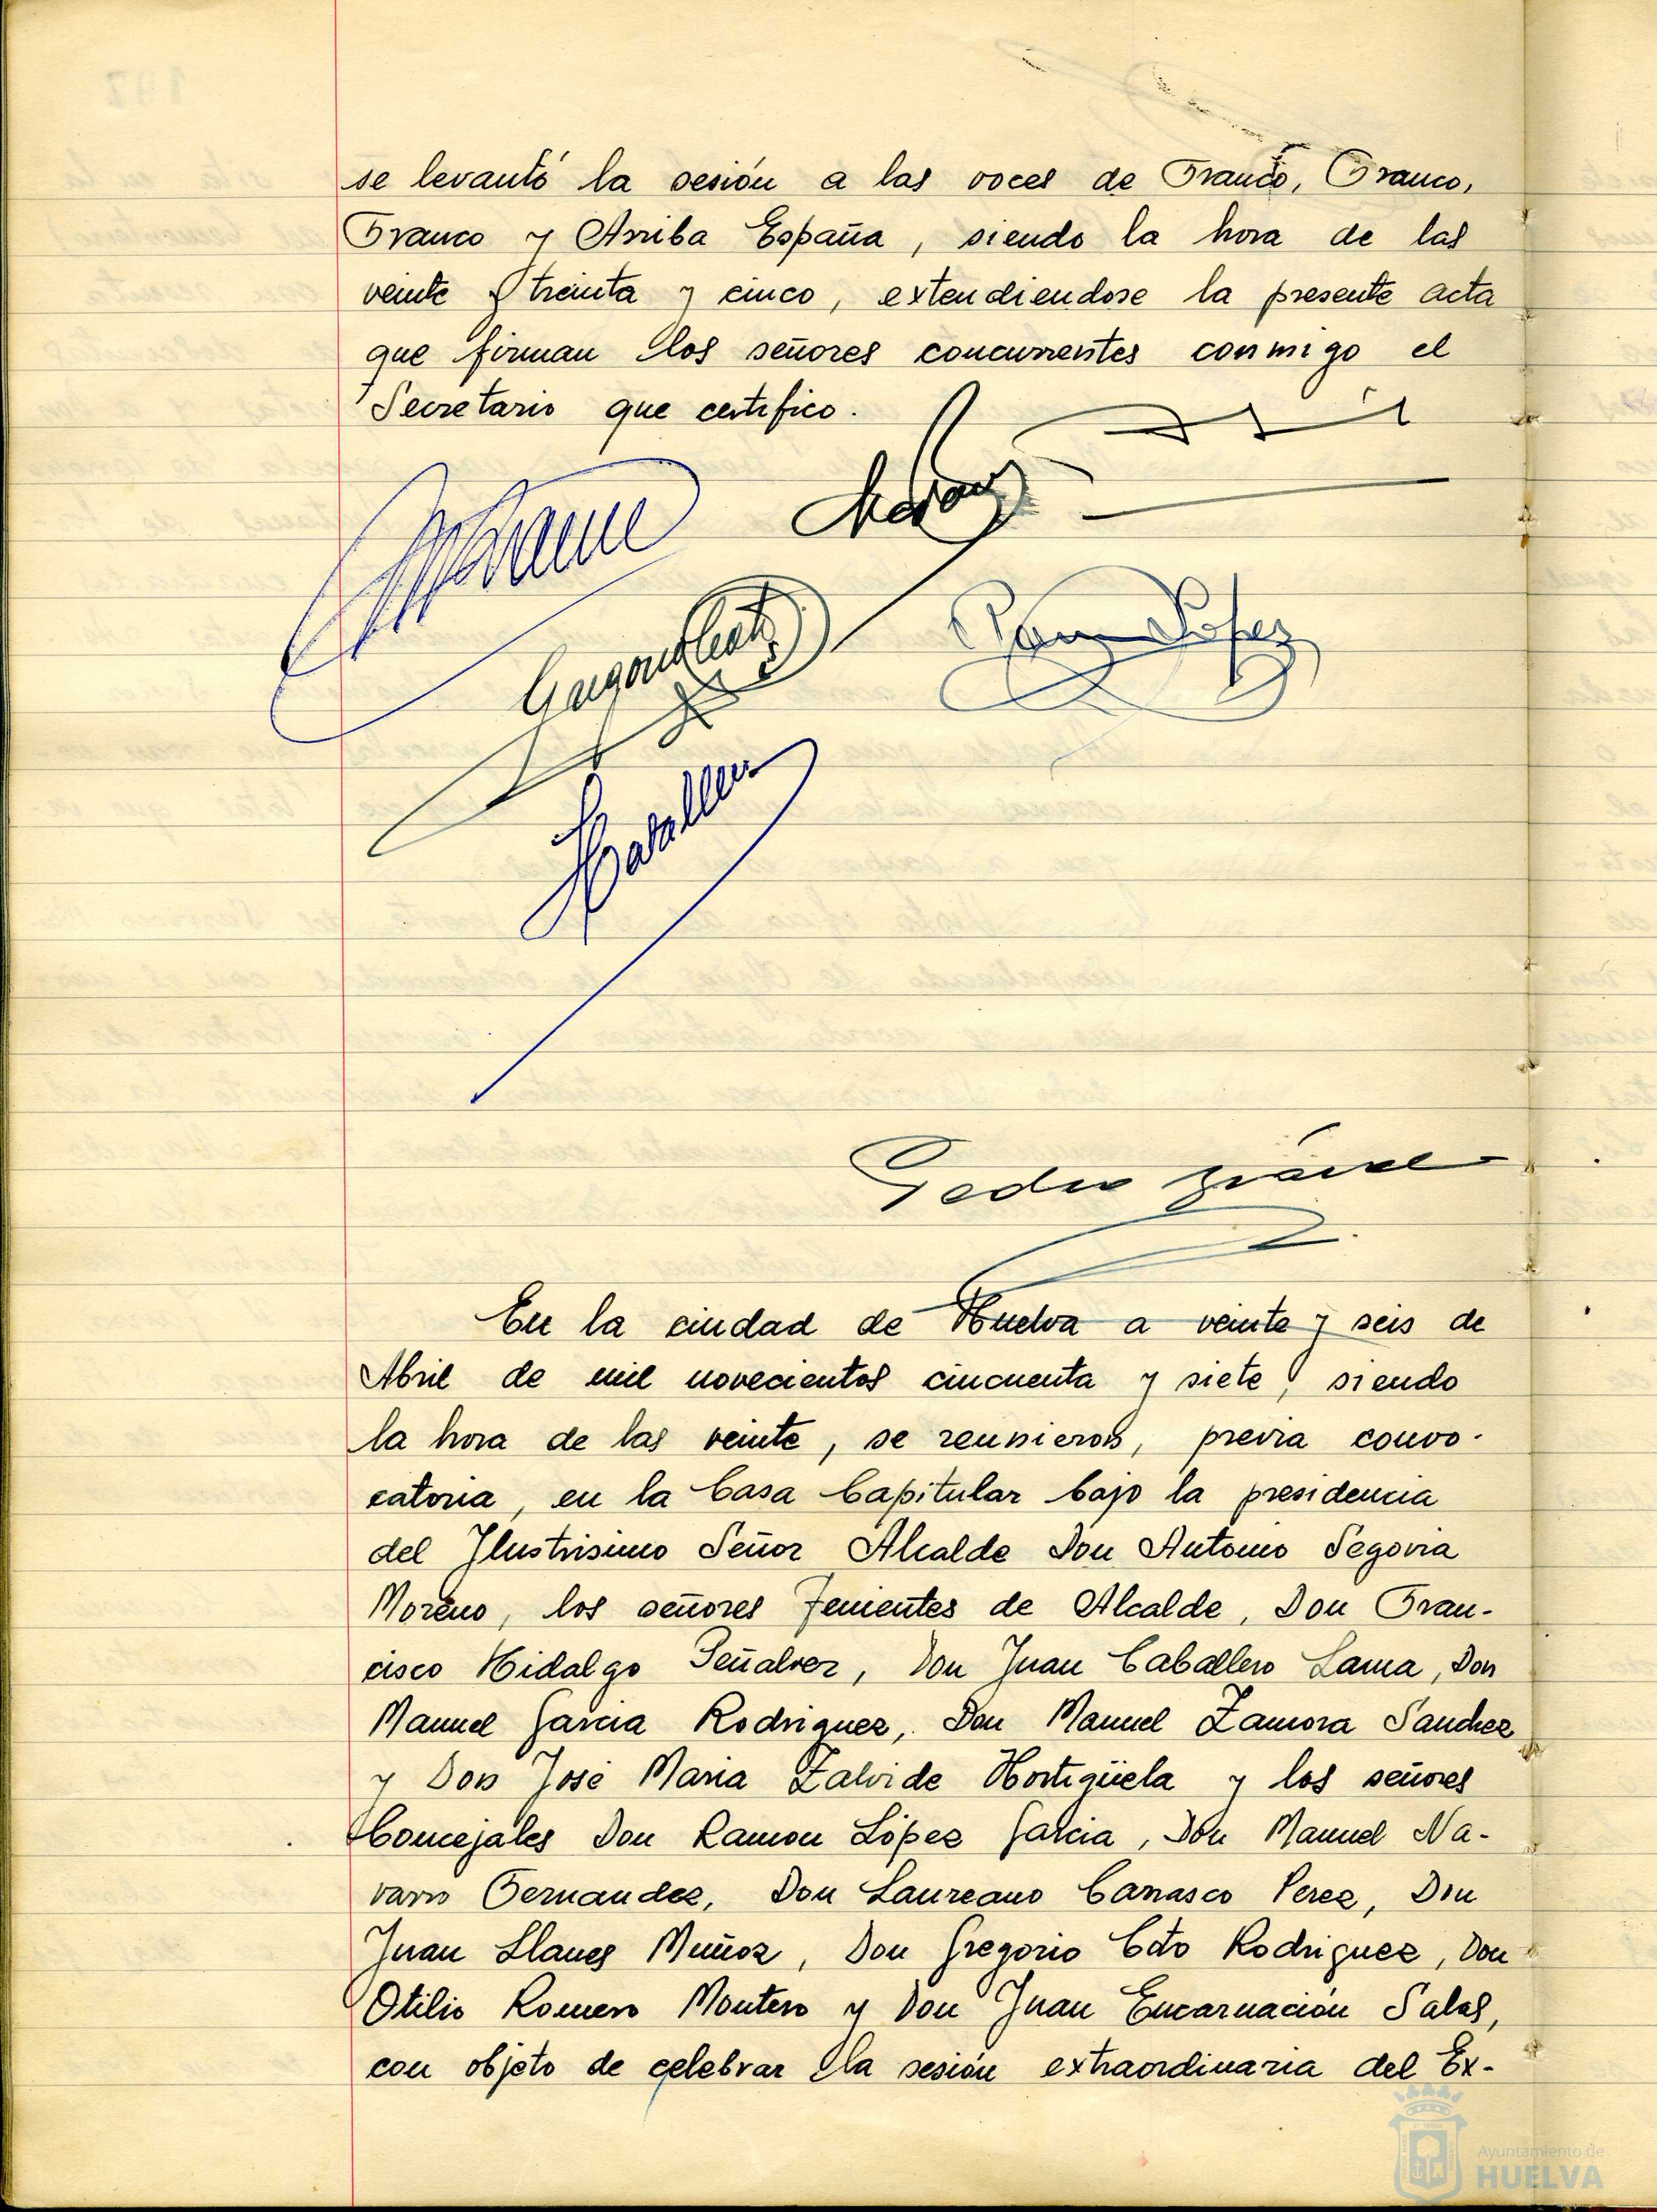 se levantó la sesión a las voces de Franco, Franco,
Franco y Arriba España, siendo la hora de las
veinte y treinta y cinco, extendiendose la presente acta
que firman los señores concurrentes conmigo el
Secretario que certifico.
Ramon López
Caballero
Pedro
En la ciudad de Huelva a veinte y seis de
Abril de mil novecientos cincuenta y siete, siendo
la hora de las veinte, se reunieron, previa convo-
catoria, en la Casa Capitular bajo la presidencia
del Ilustrisimo Señor Alcalde Don Antonio Segovia
Moreno, los señores Tenientes de Alcalde, Don Fran-
cisco Hidalgo Peñalver, Don Juan Caballero Lama, Don
Manuel Garcia Rodriguez, Don Manuel Zamora Sanchez
y Don José Maria Zalvide Hortigüela y los señores
Concejales Don Ramon López Garcia, Don Manuel Na-
varro Fernandez, Don Laureano Carrasco Perez, Don
Juan Llanes Muñoz, Don Gregorio Coto Rodriguez, Don
Otilio Romero Montero y Don Juan Encarnación Salas,
con objeto de celebrar la sesión extraordinaria del Ex-
Ayuntamiento de
HUELVA